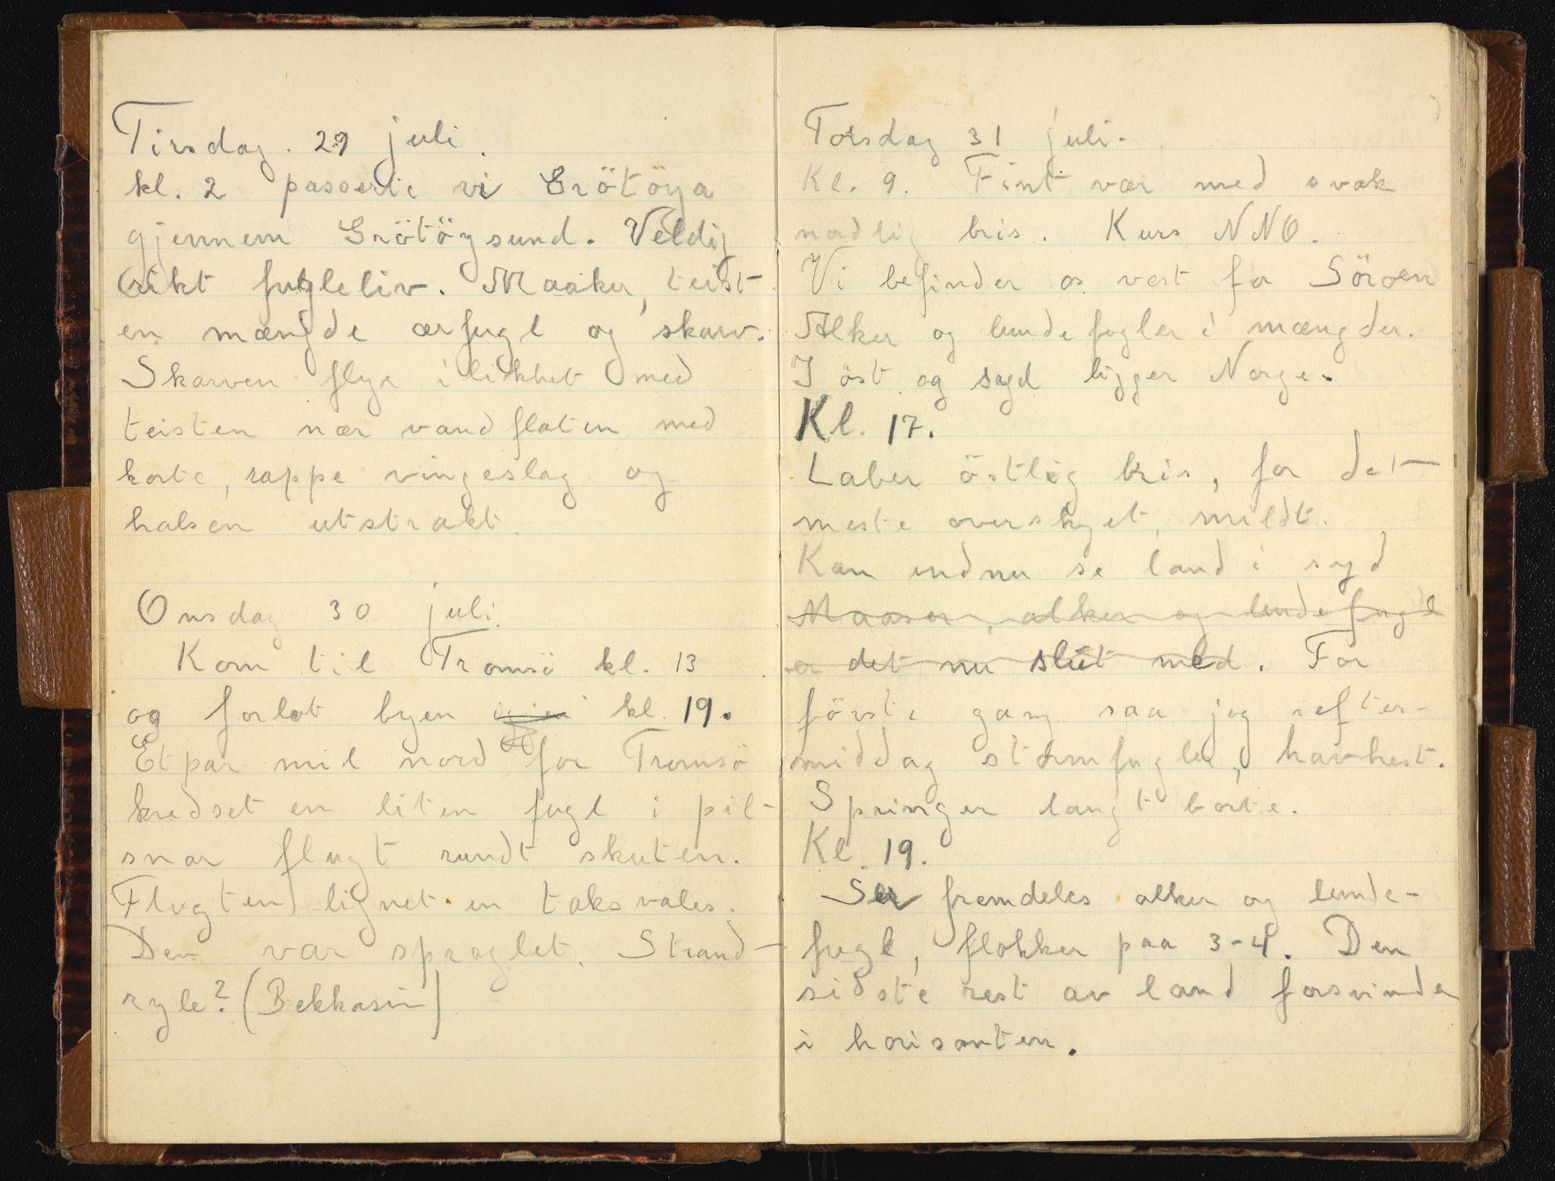 Tirsdag. 29 juli.
kl. 2 passerte vi Grötöya
gjennem Grötöysund. Veldig
rikt fugleliv. Maaker, teist
en mængde ærfugl og skarv.
Skarven flyr i likhet med
teisten nær vandflaten med
korte, rappe vingeslag og
halsen utstrakt.
Onsdag 30 juli.
Kom til Tromsö kl. 13
og forlot byen kl. 19.
Et par mil nord for Tromsö
kredset en liten fugl i pil-
snar flugt rundt skuten.
Flugten lignet en taksvales.
Den var spraglet. Strand-
ryle? (Bekkasin)
Torsdag 31 juli.
Kl. 9. Fint vær med svak
nordlig bris. Kurs NNO.
Vi befinder os vest for Söröen
Alker og lundefugler i mængder.
I öst og syd ligger Norge.
Kl. 17.
Laber östlig bris, for det
meste overskyet, mildt.
Kan endnu se land i syd
Maaser, alker og lundefugl
er det nu slut med. For
förste gang saa jeg iefter-
middag stormfugler, havhest.
Springer langt borte.
Kl. 19.
Ser fremdeles alker og lunde-
fugl, flokker paa 3-4. Den
sidste rest av land forsvinder
i horisonten.